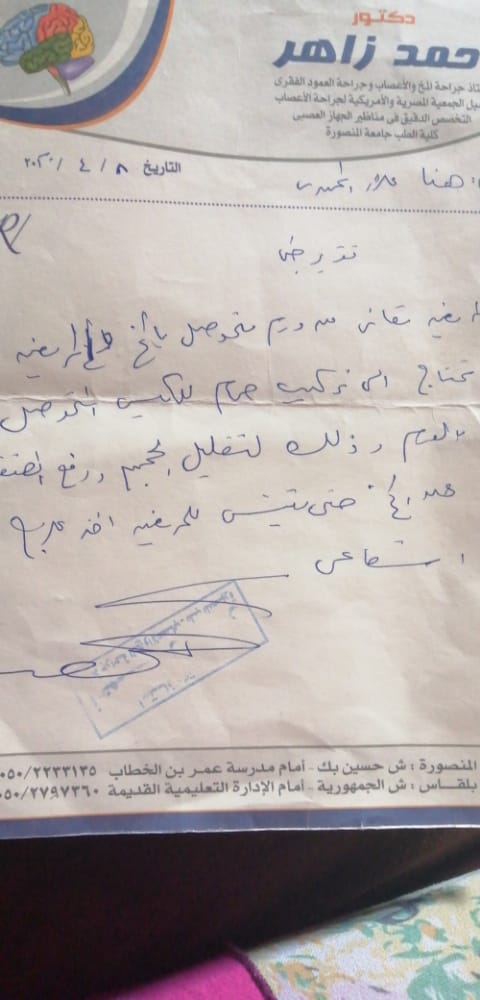 دكتور
حمد زاهر
تاذ جراحة المخ والأعصاب وجراحة العمود الفقرى
يل الجمعية المصرية والأمريكية لجراحة الأعصاب
التخصص الدقيق فى مناظير الجهاز العصبى
كلية الطب جامعة المنصورة
التاريخ ٨ / ٤ / ٢٠٢٠
تقرير طبى
المريضه تعانى من ورم متحوصل بالمخ والمريضه
تحتاج الى تركيب صمام للكيس المتحوصل
وذلك لتقليل الحجم ورفع الضغط
حتى يتسنى للمريضه اخذ علاج
اشعاعى
المنصورة : ش حسين بك - أمام مدرسة عمر بن الخطاب ٠٥٠/٢٢٣٣١٣٥
بلقاس : ش الجمهورية - أمام الإدارة التعليمية القديمة ٠٥٠/٢٧٩٧٣٦٠